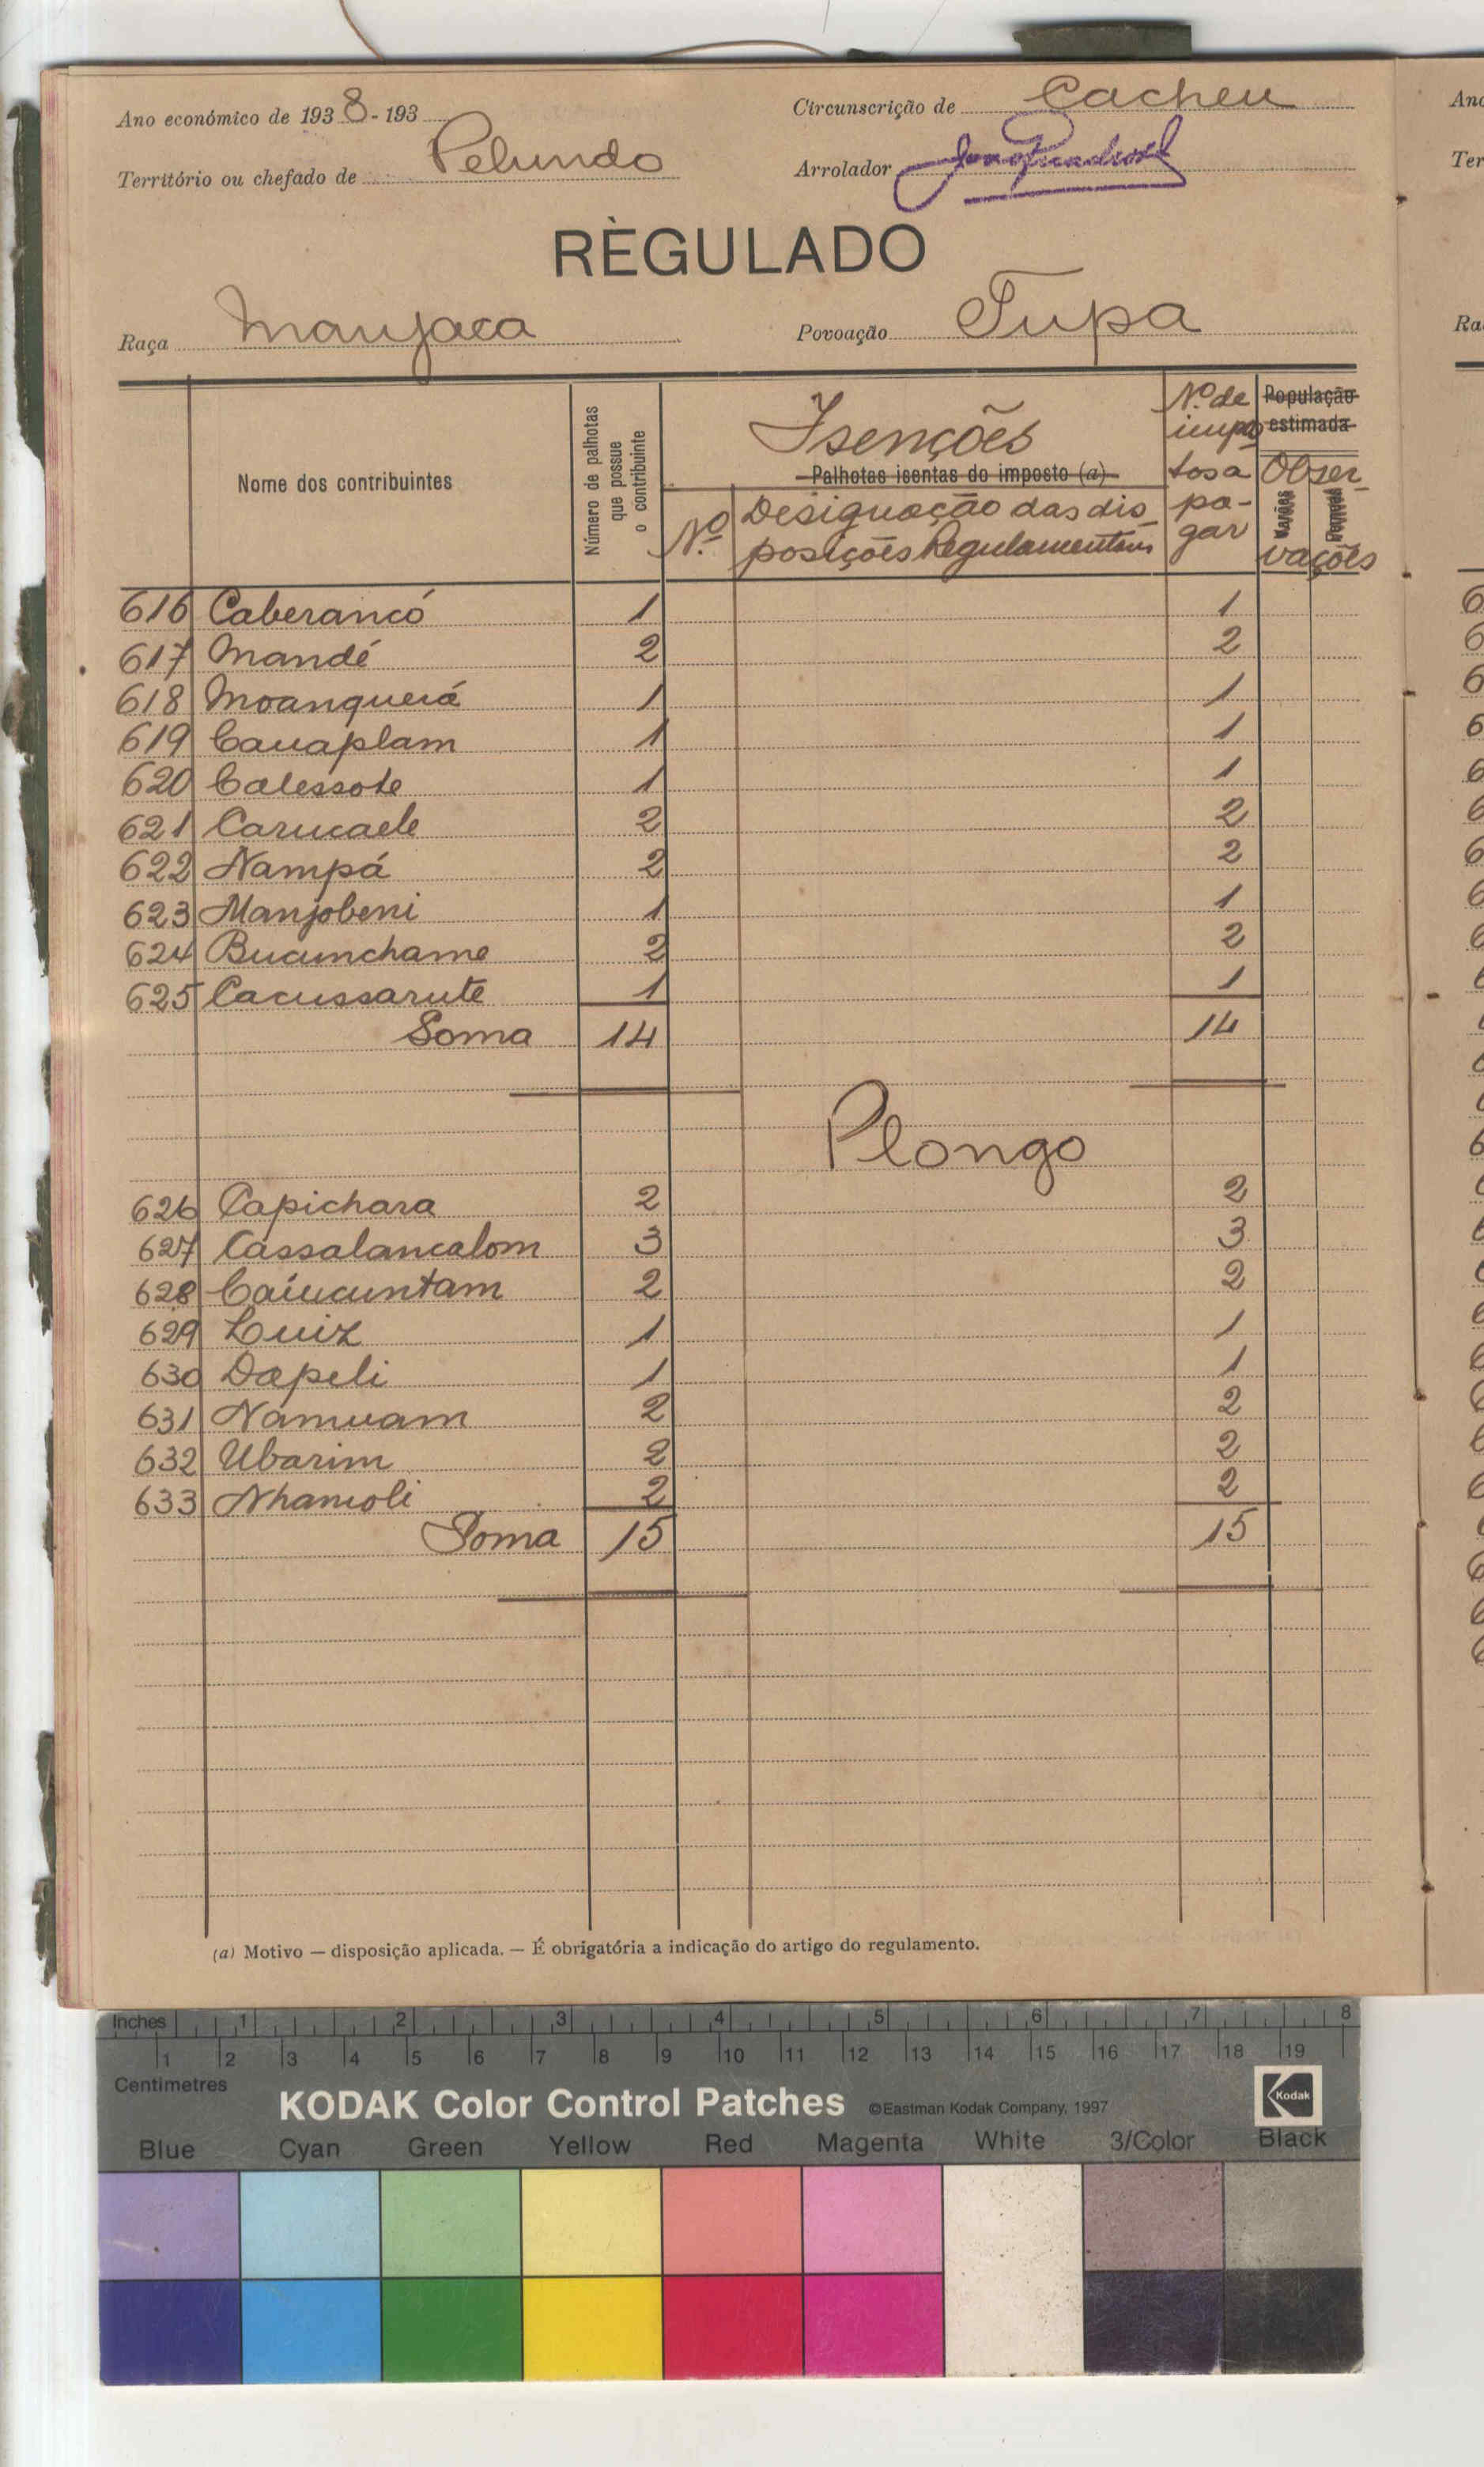 Ano económico de 1938-193
Circunscrição de Cacheu
Território ou chefado de Pelundo
Arrolador
RÈGULADO
Raça Manjaca
Povoação Tupa
Nome dos contribuintes
Número de palhotas que possue o contribuinte
Isenções
Palhotas isentas do imposto (a)
Nº
Designação das dis
posições Regulamentares
Nº de
impos
tos a
pa-
gar
População
estimada
Obser-
vações
616 Caberancó 1 1
617 Mandé 2 2
618 Moanguerá 1 1
619 Cauaplam 1 1
620 Calessote 1 1
621 Carucaele 2 2
622 Nampá 2 2
623 Manjobeni 1 1
624 Bucunchame 2 2
625 Cacussarute 1 1
Soma 14 14
Plongo
626 Capichara 2 2
627 Cassalancalom 3 3
628 Caiucuntam 2 2
629 Luiz 1 1
630 Dapeli 1 1
631 Namuam 2 2
632 Ubarim 2 2
633 Nhamoli 2 2
Soma 15 15
(a) Motivo — disposição aplicada. — É obrigatória a indicação do artigo do regulamento.
Inches 1 2 3 4 5 6 7 8
1 2 3 4 5 6 7 8 9 10 11 12 13 14 15 16 17 18 19
Centimetres
KODAK Color Control Patches ©Eastman Kodak Company, 1997 Kodak
Blue Cyan Green Yellow Red Magenta White 3/Color Black